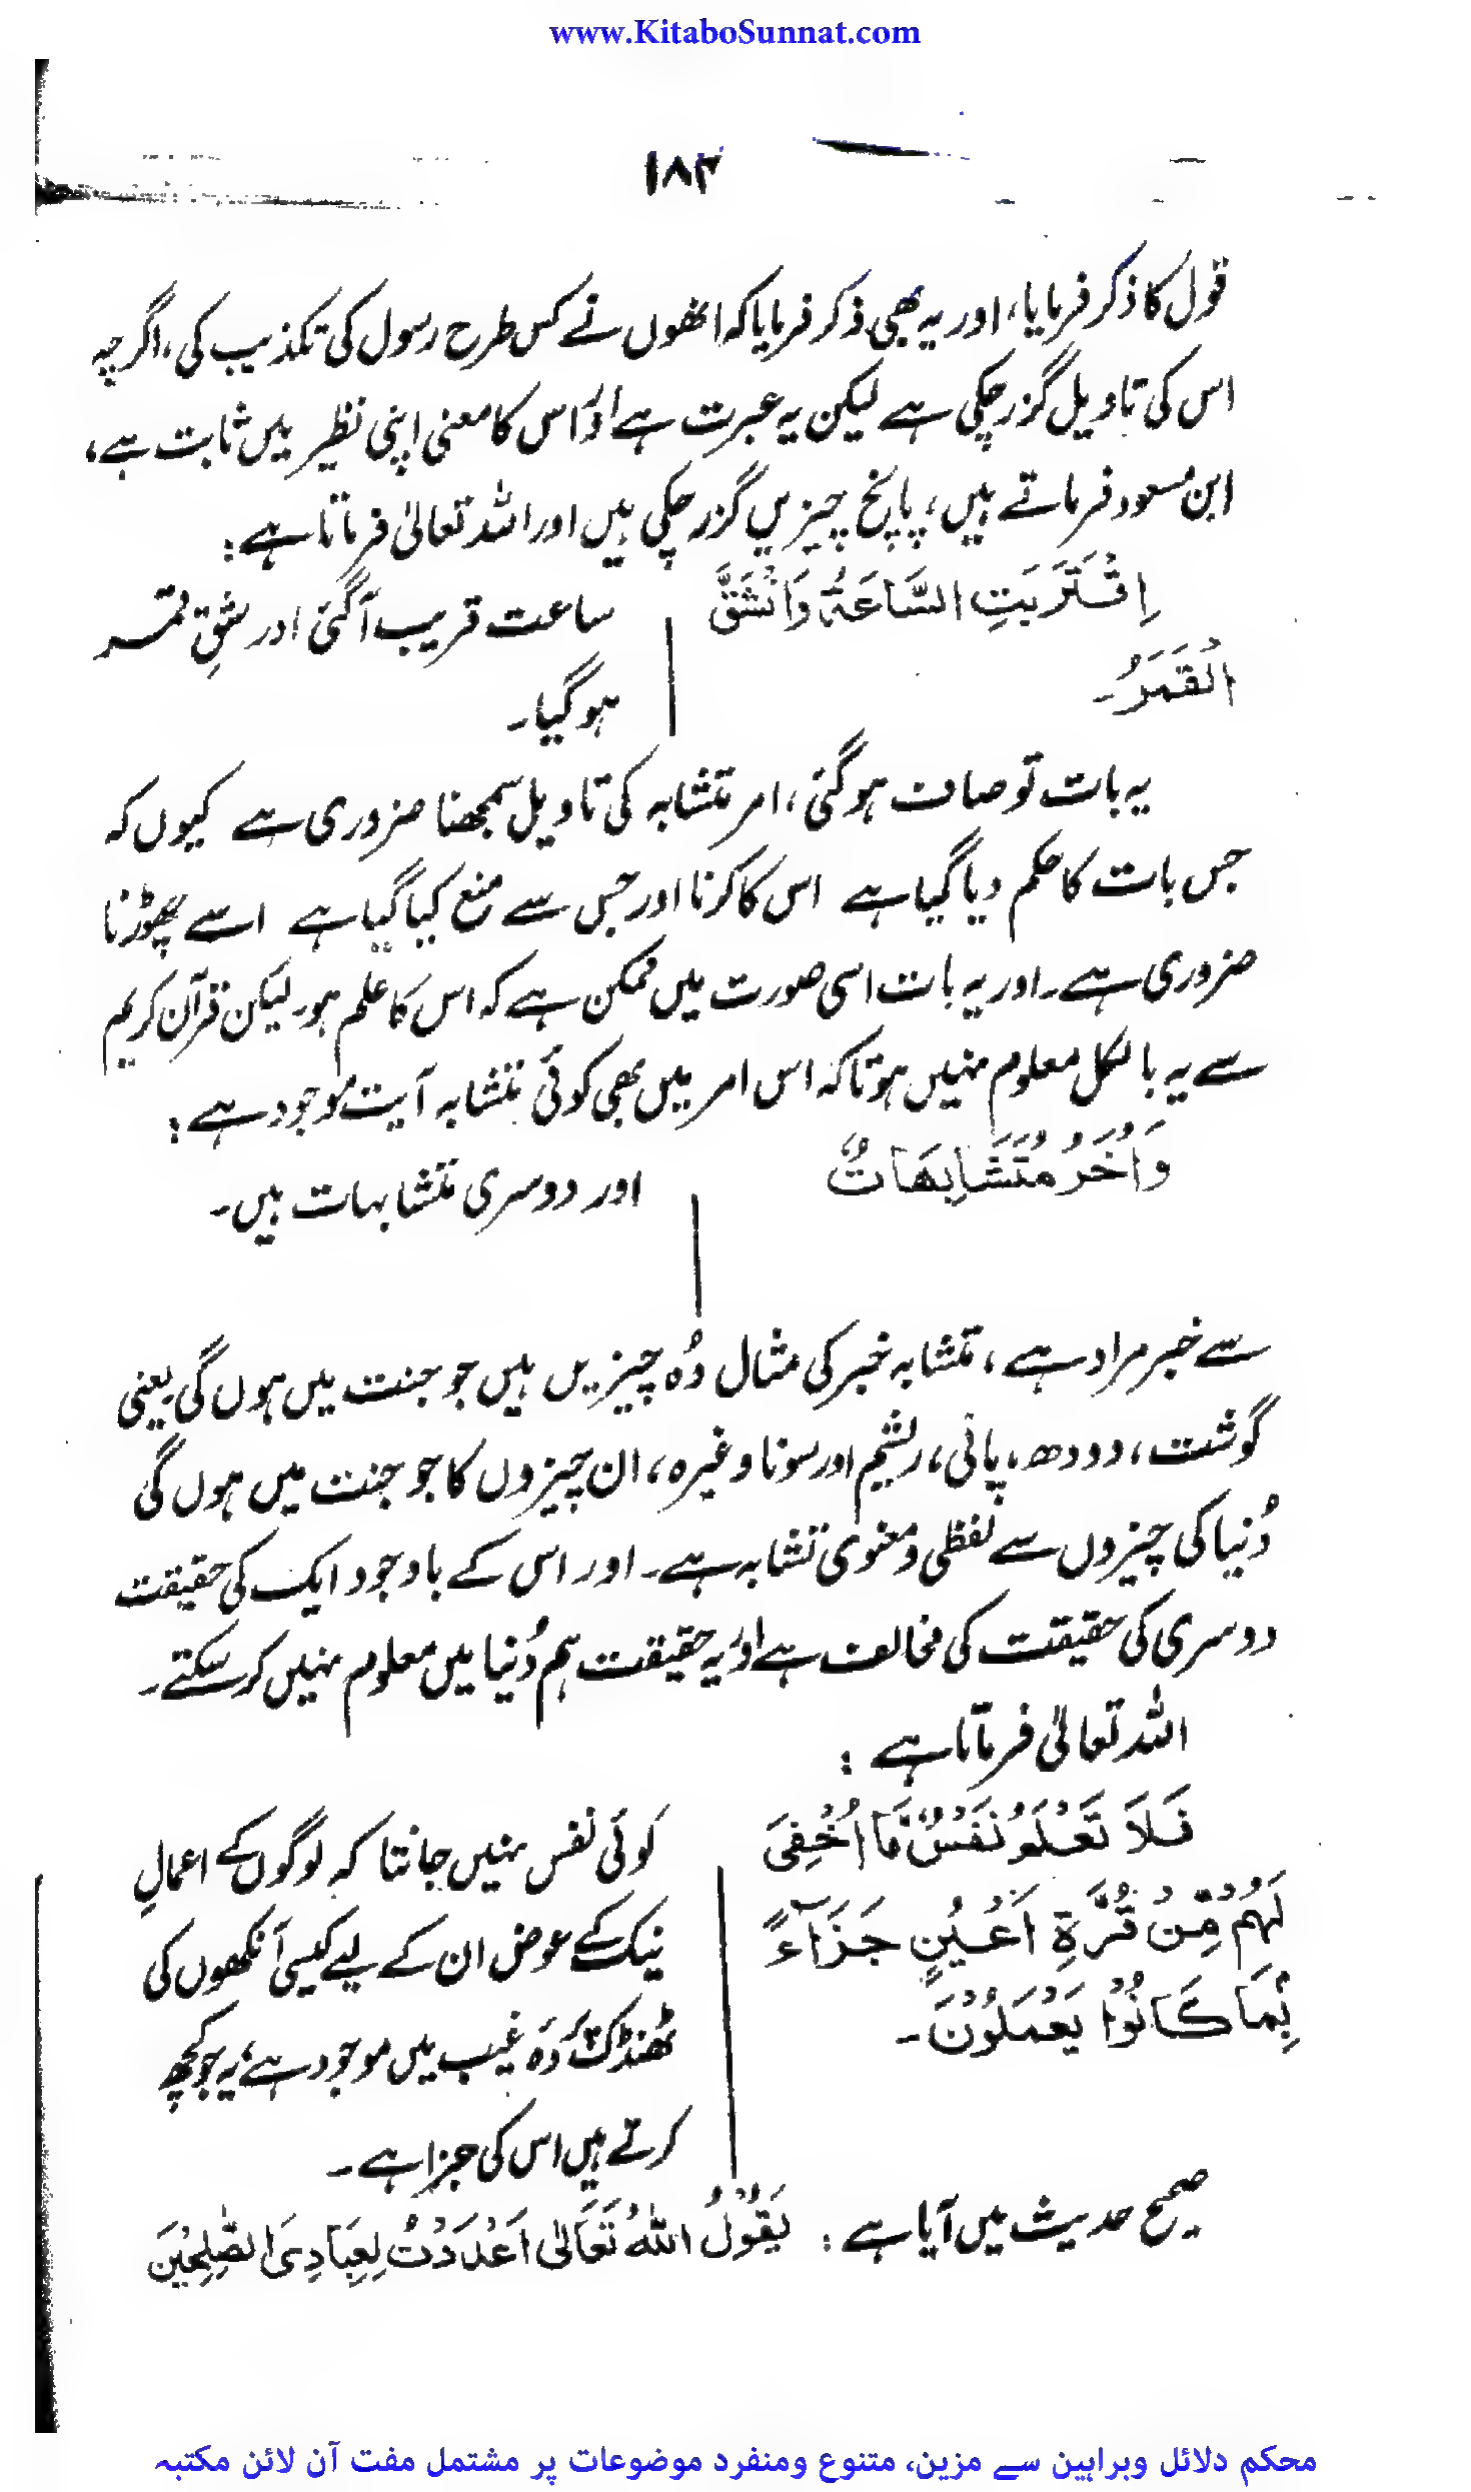 www.KitaboSunnat.com
۱۸۳
قول کا ذکر فرمایا، اور یہ بھی ذکر فرمایا کہ انھوں نے کس طرح رسول کی تکذیب کی، اگرچہ
اس کی تاویل گزر چکی ہے لیکن یہ عبرت ہے اور اس کا معنی اپنی نظیر میں ثابت ہے،
ابن مسعود فرماتے ہیں، پانچ چیزیں گزر چکی ہیں اور اللہ تعالیٰ فرماتا ہے:
اِقْتَرَبَتِ السَّاعَۃُ وَانْشَقَّ
الْقَمَرُ۔
ساعت قریب آ گئی اور شقِ قمر
ہو گیا۔
یہ بات تو صاف ہو گئی، امر متشابہ کی تاویل سمجھنا ضروری ہے کیوں کہ
جس بات کا حکم دیا گیا ہے اس کا کرنا اور جس سے منع کیا گیا ہے اسے چھوڑنا
ضروری ہے۔ اور یہ بات اسی صورت میں ممکن ہے کہ اس کا علم ہو۔ لیکن قرآن کریم
سے یہ بالکل معلوم نہیں ہوتا کہ اس امر میں بھی کوئی متشابہ آیت موجود ہے:
وَاُخَرُ مُتَشَابِھَاتٌ
اور دوسری متشابہات ہیں۔
سے خبر مراد ہے، متشابہ خبر کی مثال وُہ چیزیں ہیں جو جنت میں ہوں گی یعنی
گوشت، دودھ، پانی، ریشم اور سونا وغیرہ، ان چیزوں کا جو جنت میں ہوں گی
دُنیا کی چیزوں سے لفظی و معنوی تشابہ ہے۔ اور اس کے باوجود ایک کی حقیقت
دوسری کی حقیقت کی مخالف ہے اور یہ حقیقت ہم دُنیا میں معلوم نہیں کر سکتے۔
اللہ تعالیٰ فرماتا ہے:
فَلَا تَعْلَمُ نَفْسٌ مَا اُخْفِیَ
لَھُمْ مِّنْ قُرَّۃِ اَعْیُنٍ جَزَآءً
بِمَا کَانُوْا یَعْمَلُوْنَ۔
کوئی نفس نہیں جانتا کہ لوگوں کے اعمالِ
نیک کے عوض ان کے لیے کیسی آنکھوں کی
ٹھنڈک پردہ غیب میں موجود ہے، یہ جو کچھ
کرتے ہیں اس کی جزا ہے۔
صحیح حدیث میں آیا ہے: یَقُوْلُ اللہُ تَعَالٰی اَعْدَدْتُ لِعِبَادِیَ الصّٰلِحِیْنَ
محکم دلائل وبراہین سے مزین، متنوع ومنفرد موضوعات پر مشتمل مفت آن لائن مکتبہ